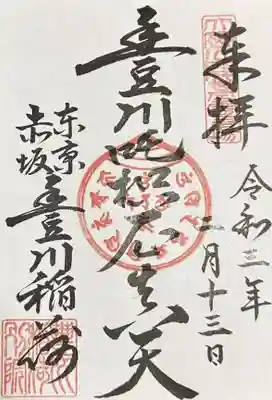 来拝
令和三年
二月十三日
豊川吒枳尼真天
東京
赤坂
豊川稲荷